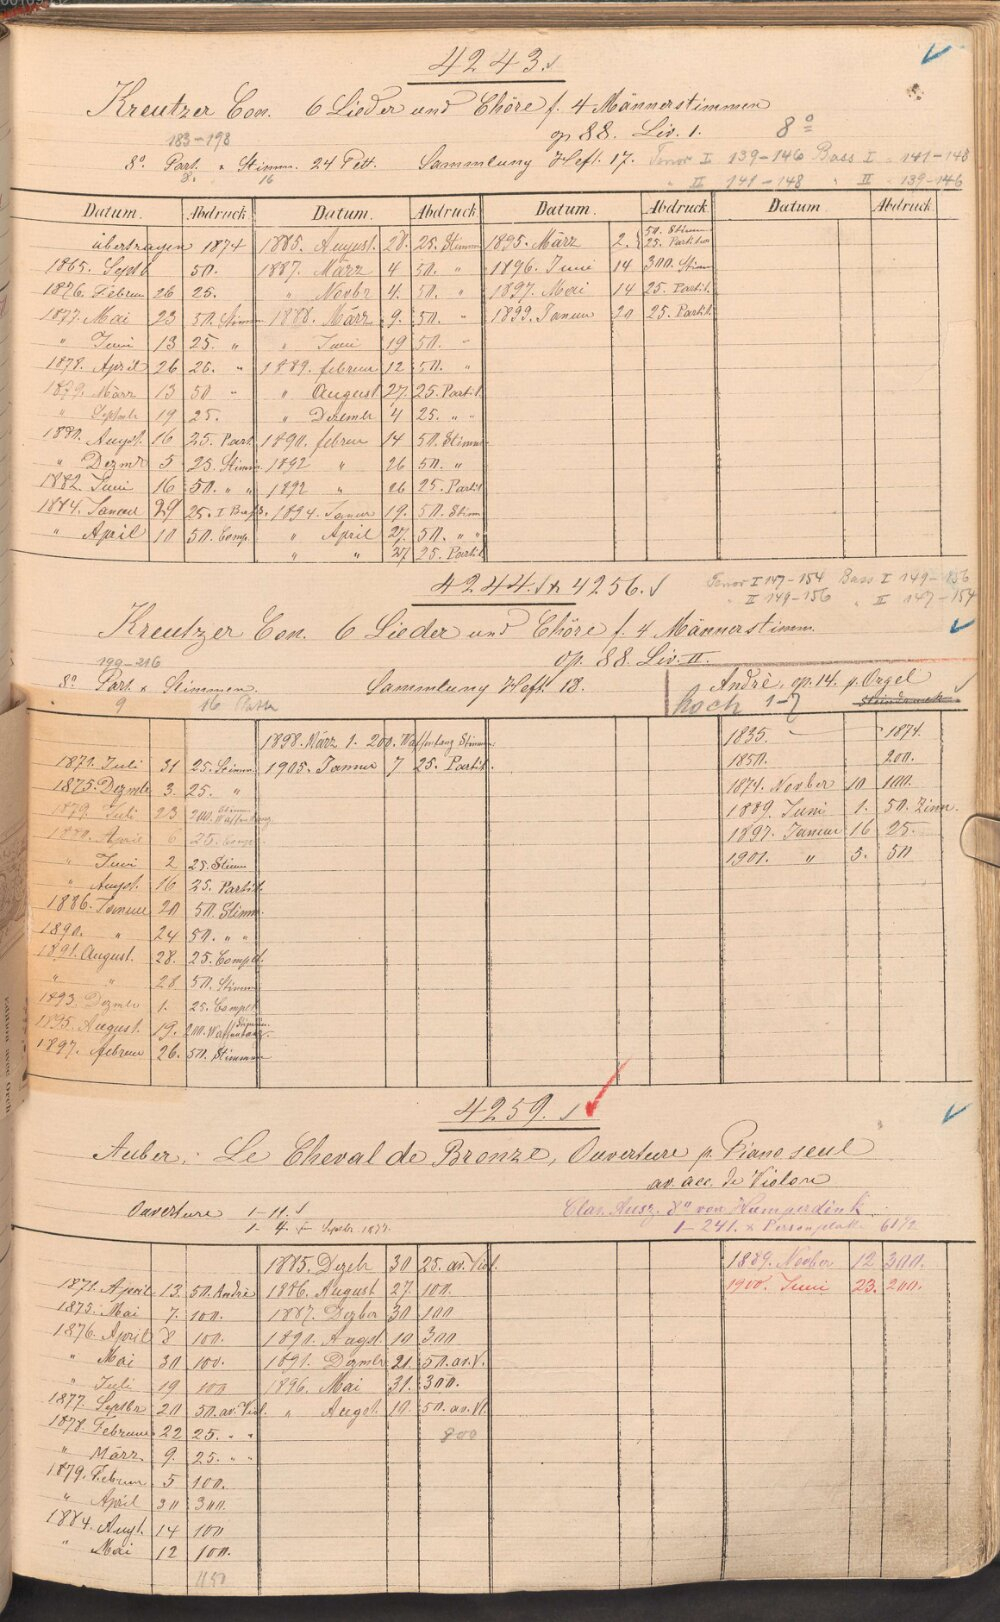 4243.
Kreutzer Con. 6 Lieder und Chöre f. 4 Männerstimmen
op 88. Liv. 1. 8º
183-198
8º. Part. & Stimm. 24 Pett. Sammlung Heft. 17. Tenor I 139-146 Bass I 141-148
8. 16 " II 141-148 " II 139-146
Datum. Abdruck Datum. Abdruck Datum. Abdruck Datum. Abdruck
übertragen 1874 1885. August. 28. 25. Stimm 1895. März 2. 50. Stimm 25. Partitur
1865. Septb 50. 1887. März 4 50. " 1896. Juni 14 300. Stimm
1876. Februar 26 25. " Novbr 4. 50. " 1897. Mai 14 25. Partit.
1877. Mai 23 50. Stimm 1888. März 9. 50. " 1899. Januar 20 25. Partit.
" Juni 13 25. " " Juni 19 50. "
1878. April 26 26. " 1889. februar 12 50. "
1879. März 13 50 " " August 27. 25. Partit.
" Septbr 19 25. " Dezembr 4 25. " "
1880. Augst. 16 25. Part. 1890. februar 14 50. Stimm.
" Dezmbr 5 25. Stimm 1892 " 26 50. "
1882. Juni 16 50. " " 1892 " 26 25. Partit
1884. Januar 29 25. I Bass. 1894. Januar 19. 50. Stim
" April 10 50. Comp. " April 27. 50. " "
" " 27 25. Partit
4244. & 4256. Tenor I 147-154 Bass I 149-156
" II 149-156 " II 147-154
Kreutzer Con. 6 Lieder und Chöre f. 4 Männerstimm.
op. 88. Liv. II.
199-216
8º Part. & Stimmen. Sammlung Heft. 18. Andrè, op. 14. p. Orgel
9 16 hoch 1-7
1898. März 1. 200. Waffentanz Stimm. 1835. 1874.
1871. Juli 31 25. Stimm. 1905. Januar 7 25. Partit. 1850. 200.
1875. Dezmbr 3. 25. " 1874. Novber 10 100.
1879. Juli 23 200. Stimm Waffentanz. 1889. Juni 1. 50. Zinn.
1880. April 6 25. Compl. 1897. Januar 16 25.
" Juni 2 25. Stimm 1901. " 5. 50
" Augst. 16 25. Partit.
1886. Januar 20 50. Stimm.
1890. " 24 50. " "
1891. August. 28. 25. Compl.
" " 28 50. Stimm
1893. Dezmbr 1. 25. Compl.
1895. August. 19. 200. Waffentanz.
1897. Februar 26. 50. Stimmen
4259.
Auber. Le Cheval de Bronze, Ouverture p. Piano seul
av. acc. de Violon
Ouverture 1-11. Clav. Ausz. dº von Humperdink.
1-4. Septbr 1877. 1-241. & Personplatt. 61½
1885. Dezbr 30 25. av. Viol. 1889. Novber 12 300.
1871. April 13. 50. André 1886. August 27. 100. 1900. Juni 23. 200.
1875. Mai 7. 100. 1887. Dezber 30 100
1876. April 8 100. 1890. Augst 10 300
" Mai 30 100. 1891. Dezmbr 21. 50. av. V.
" Juli 19 100 1896. Mai 31. 300.
1877. Septbr 20 50. av. Viol. " Augst. 10. 50. av. Vl
1878. Februar 22 25. " " 800
" März 9. 25. " "
1879. Februar 5 100.
" April 30 300.
1884. Augt. 14 100
" Mai 12 100.
1150